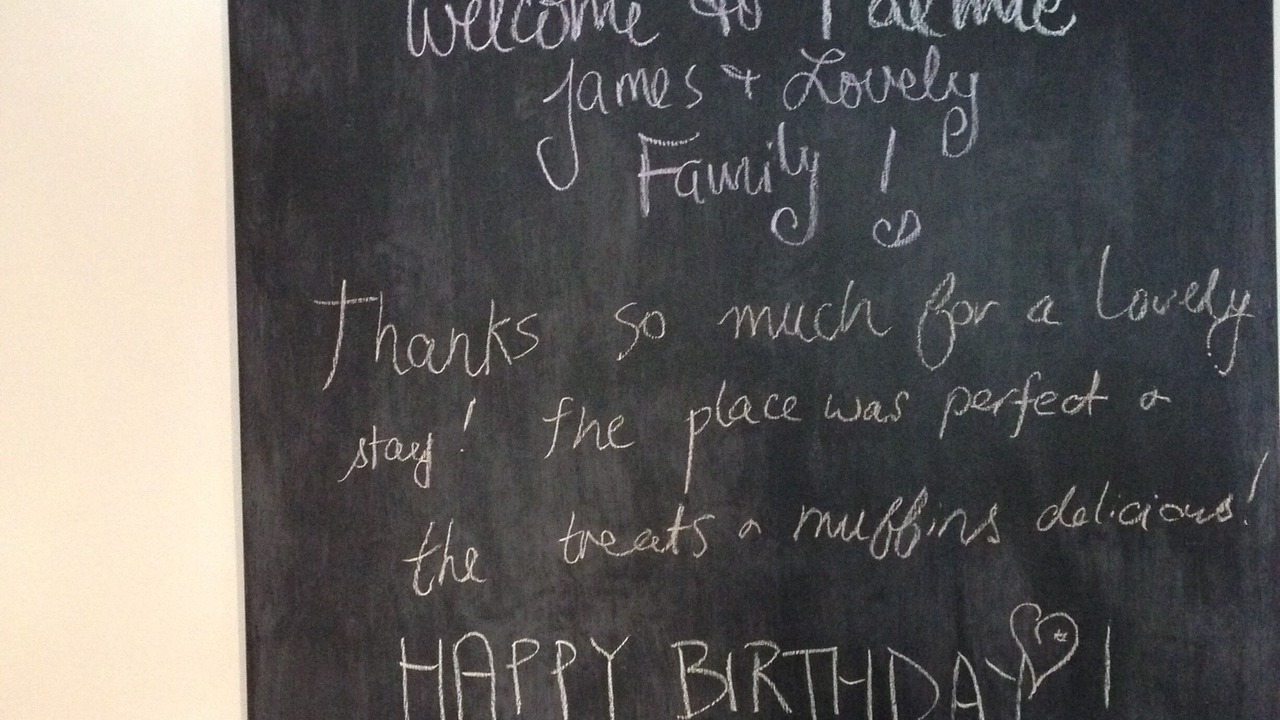 Welcome to
James + Lovely
Family !
Thanks so much for a Lovely
stay! The place was perfect &
the treats & muffins delicious!
HAPPY BIRTHDAY !